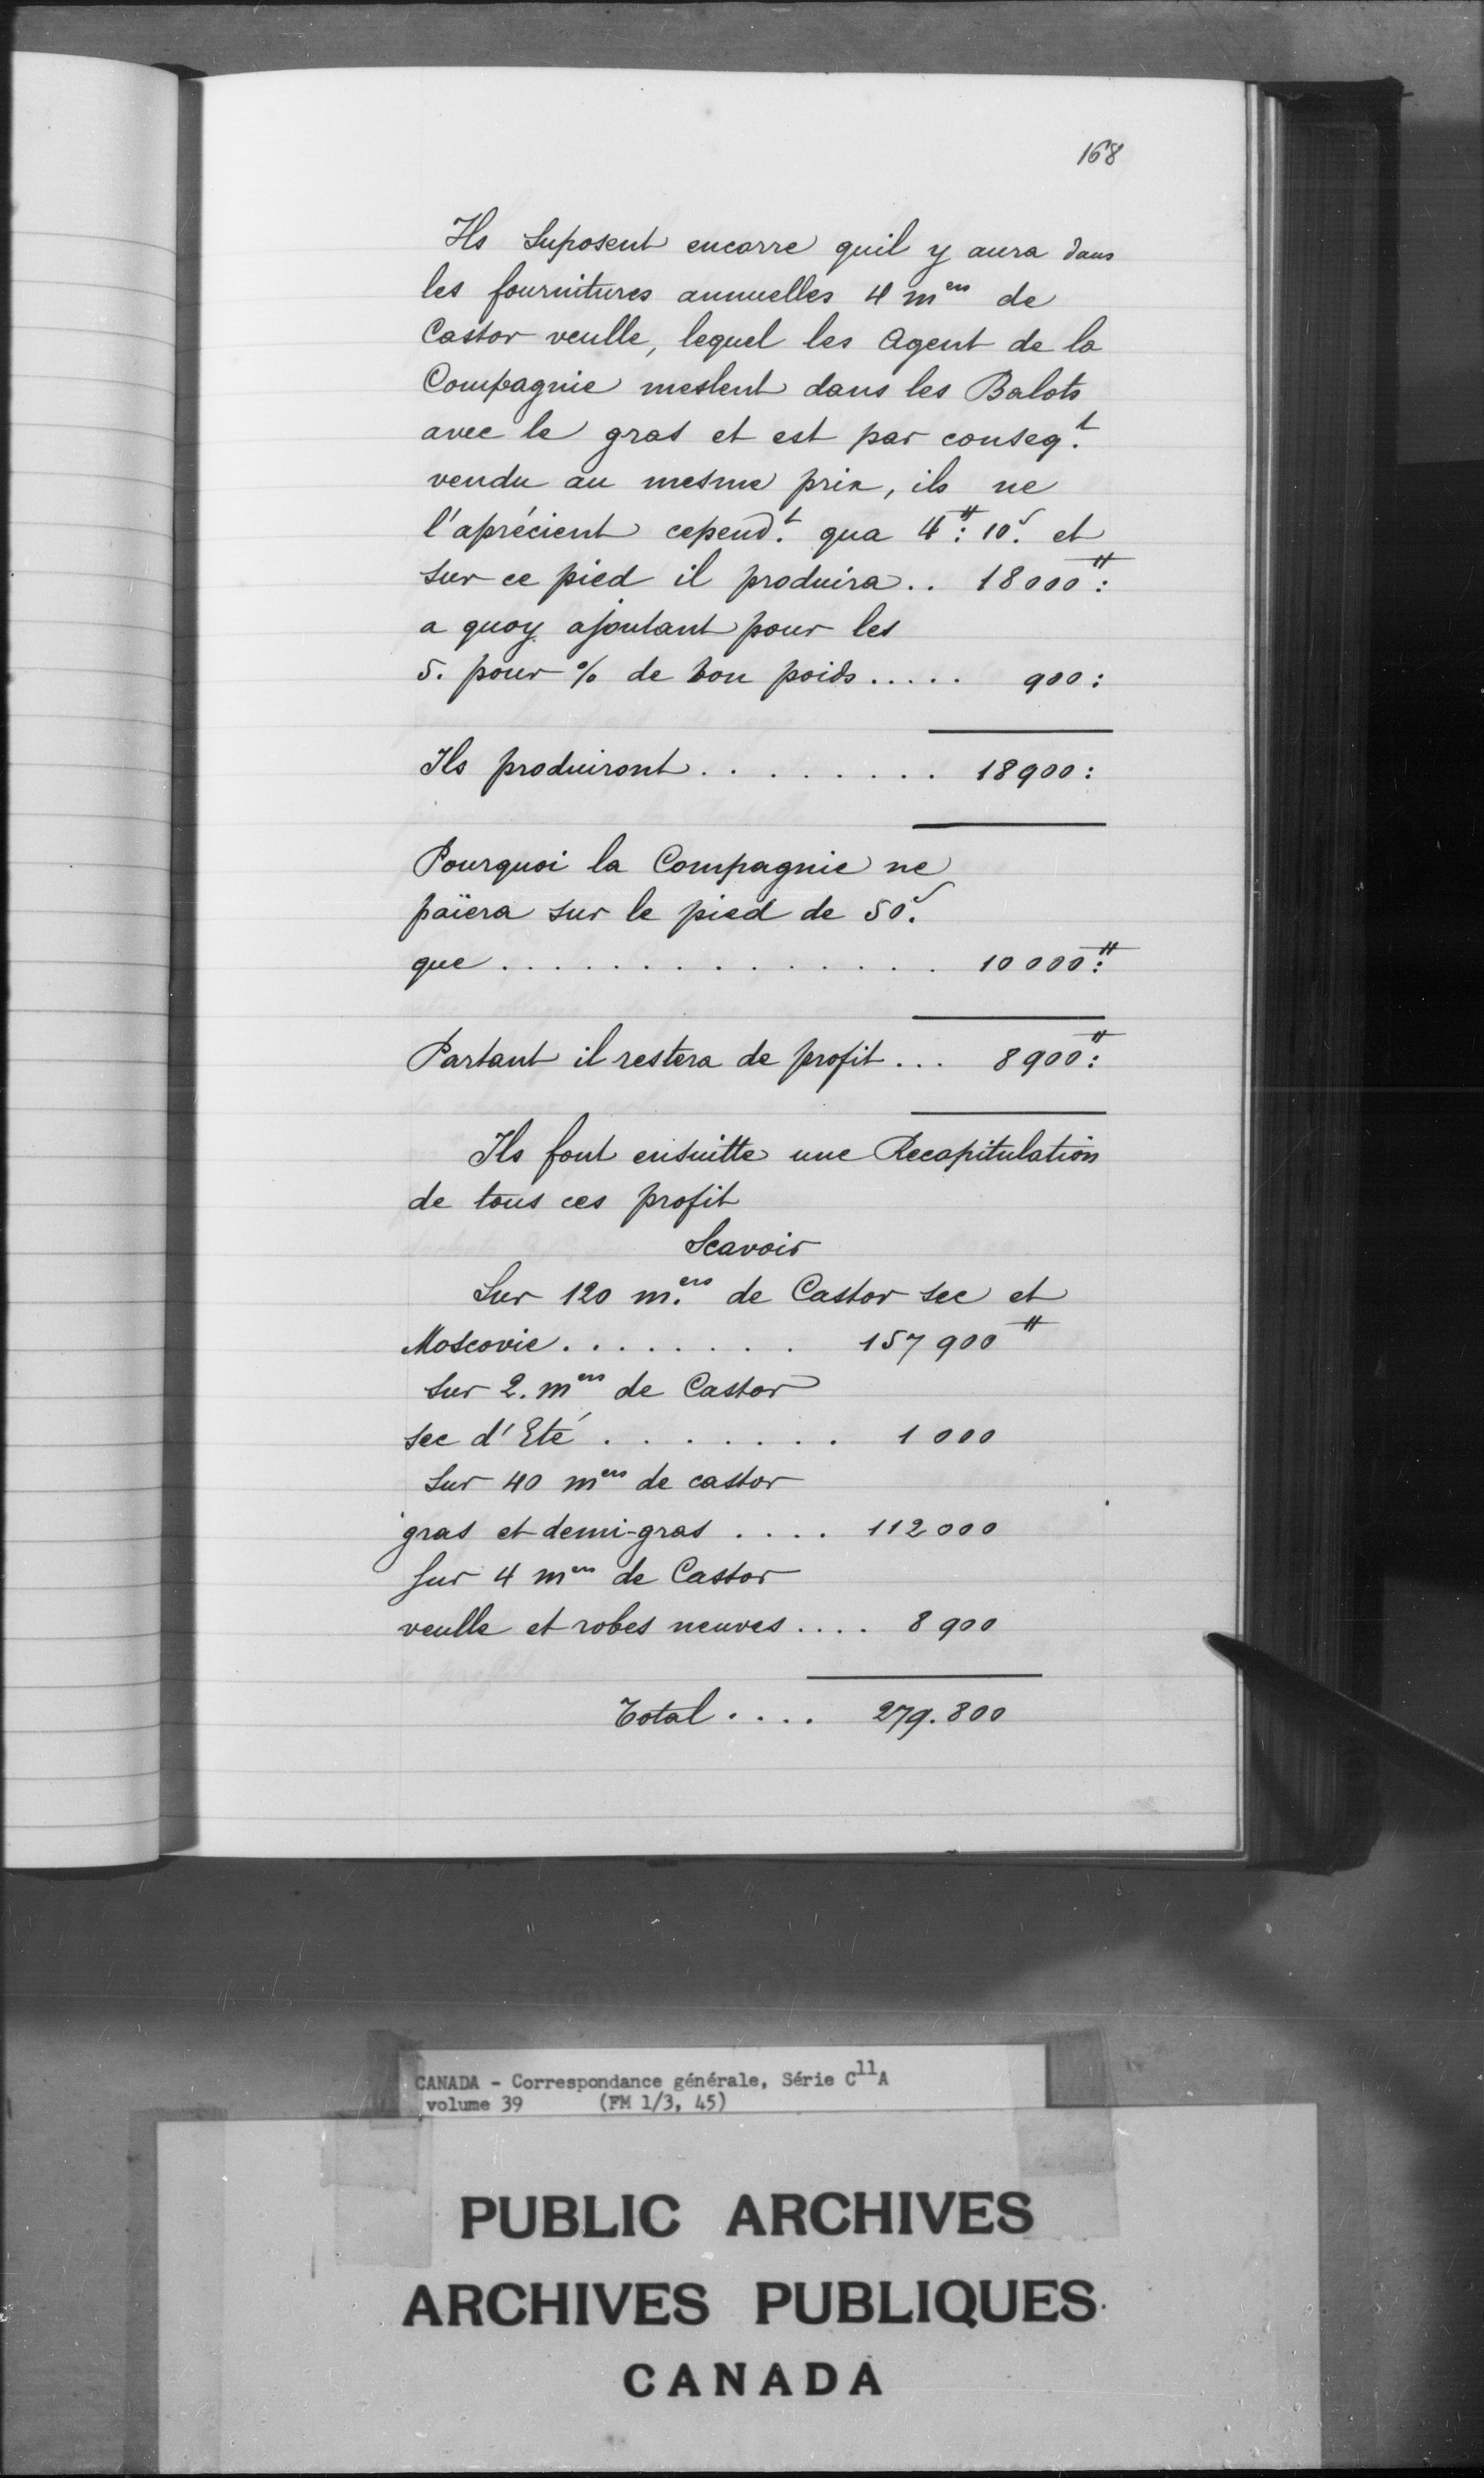 168
Ils suposent encorre quil y aura dans
les fournitures annuelles 4 m^ers de
Castor veulle, lequel les Agent de la
Compagnie meslent dans les Balots
avec le gras et est par conseq.^t
vendu au mesme prix, ils ne
l'aprécient cepend.^t qua 4^#: 10.^s et
sur ce pied il produira.. 18000^#:
a quoy ajoutant pour les
5. pour % de bon poids..... 900:
Ils produiront......... 18900:
Pourquoi la Compagnie ne
païera sur le pied de 50.^s
que................ 10000^#:
Partant il restera de profit... 8900^#:
Ils font ensuitte une Recapitulation
de tous ces profit
Scavoir
Sur 120 m.^ers de Castor sec et
Moscovie........ 157900^#
sur 2. m^ers de Castor
sec d'Eté....... 1000
Sur 40 m^ers de castor
gras et demi-gras.... 112000
Sur 4 m^ers de Castor
veulle et robes neuves.... 8900
Total.... 279.800
CANADA - Correspondance générale, Série C^11A
volume 39 (FM 1/3, 45)
PUBLIC ARCHIVES
ARCHIVES PUBLIQUES
CANADA